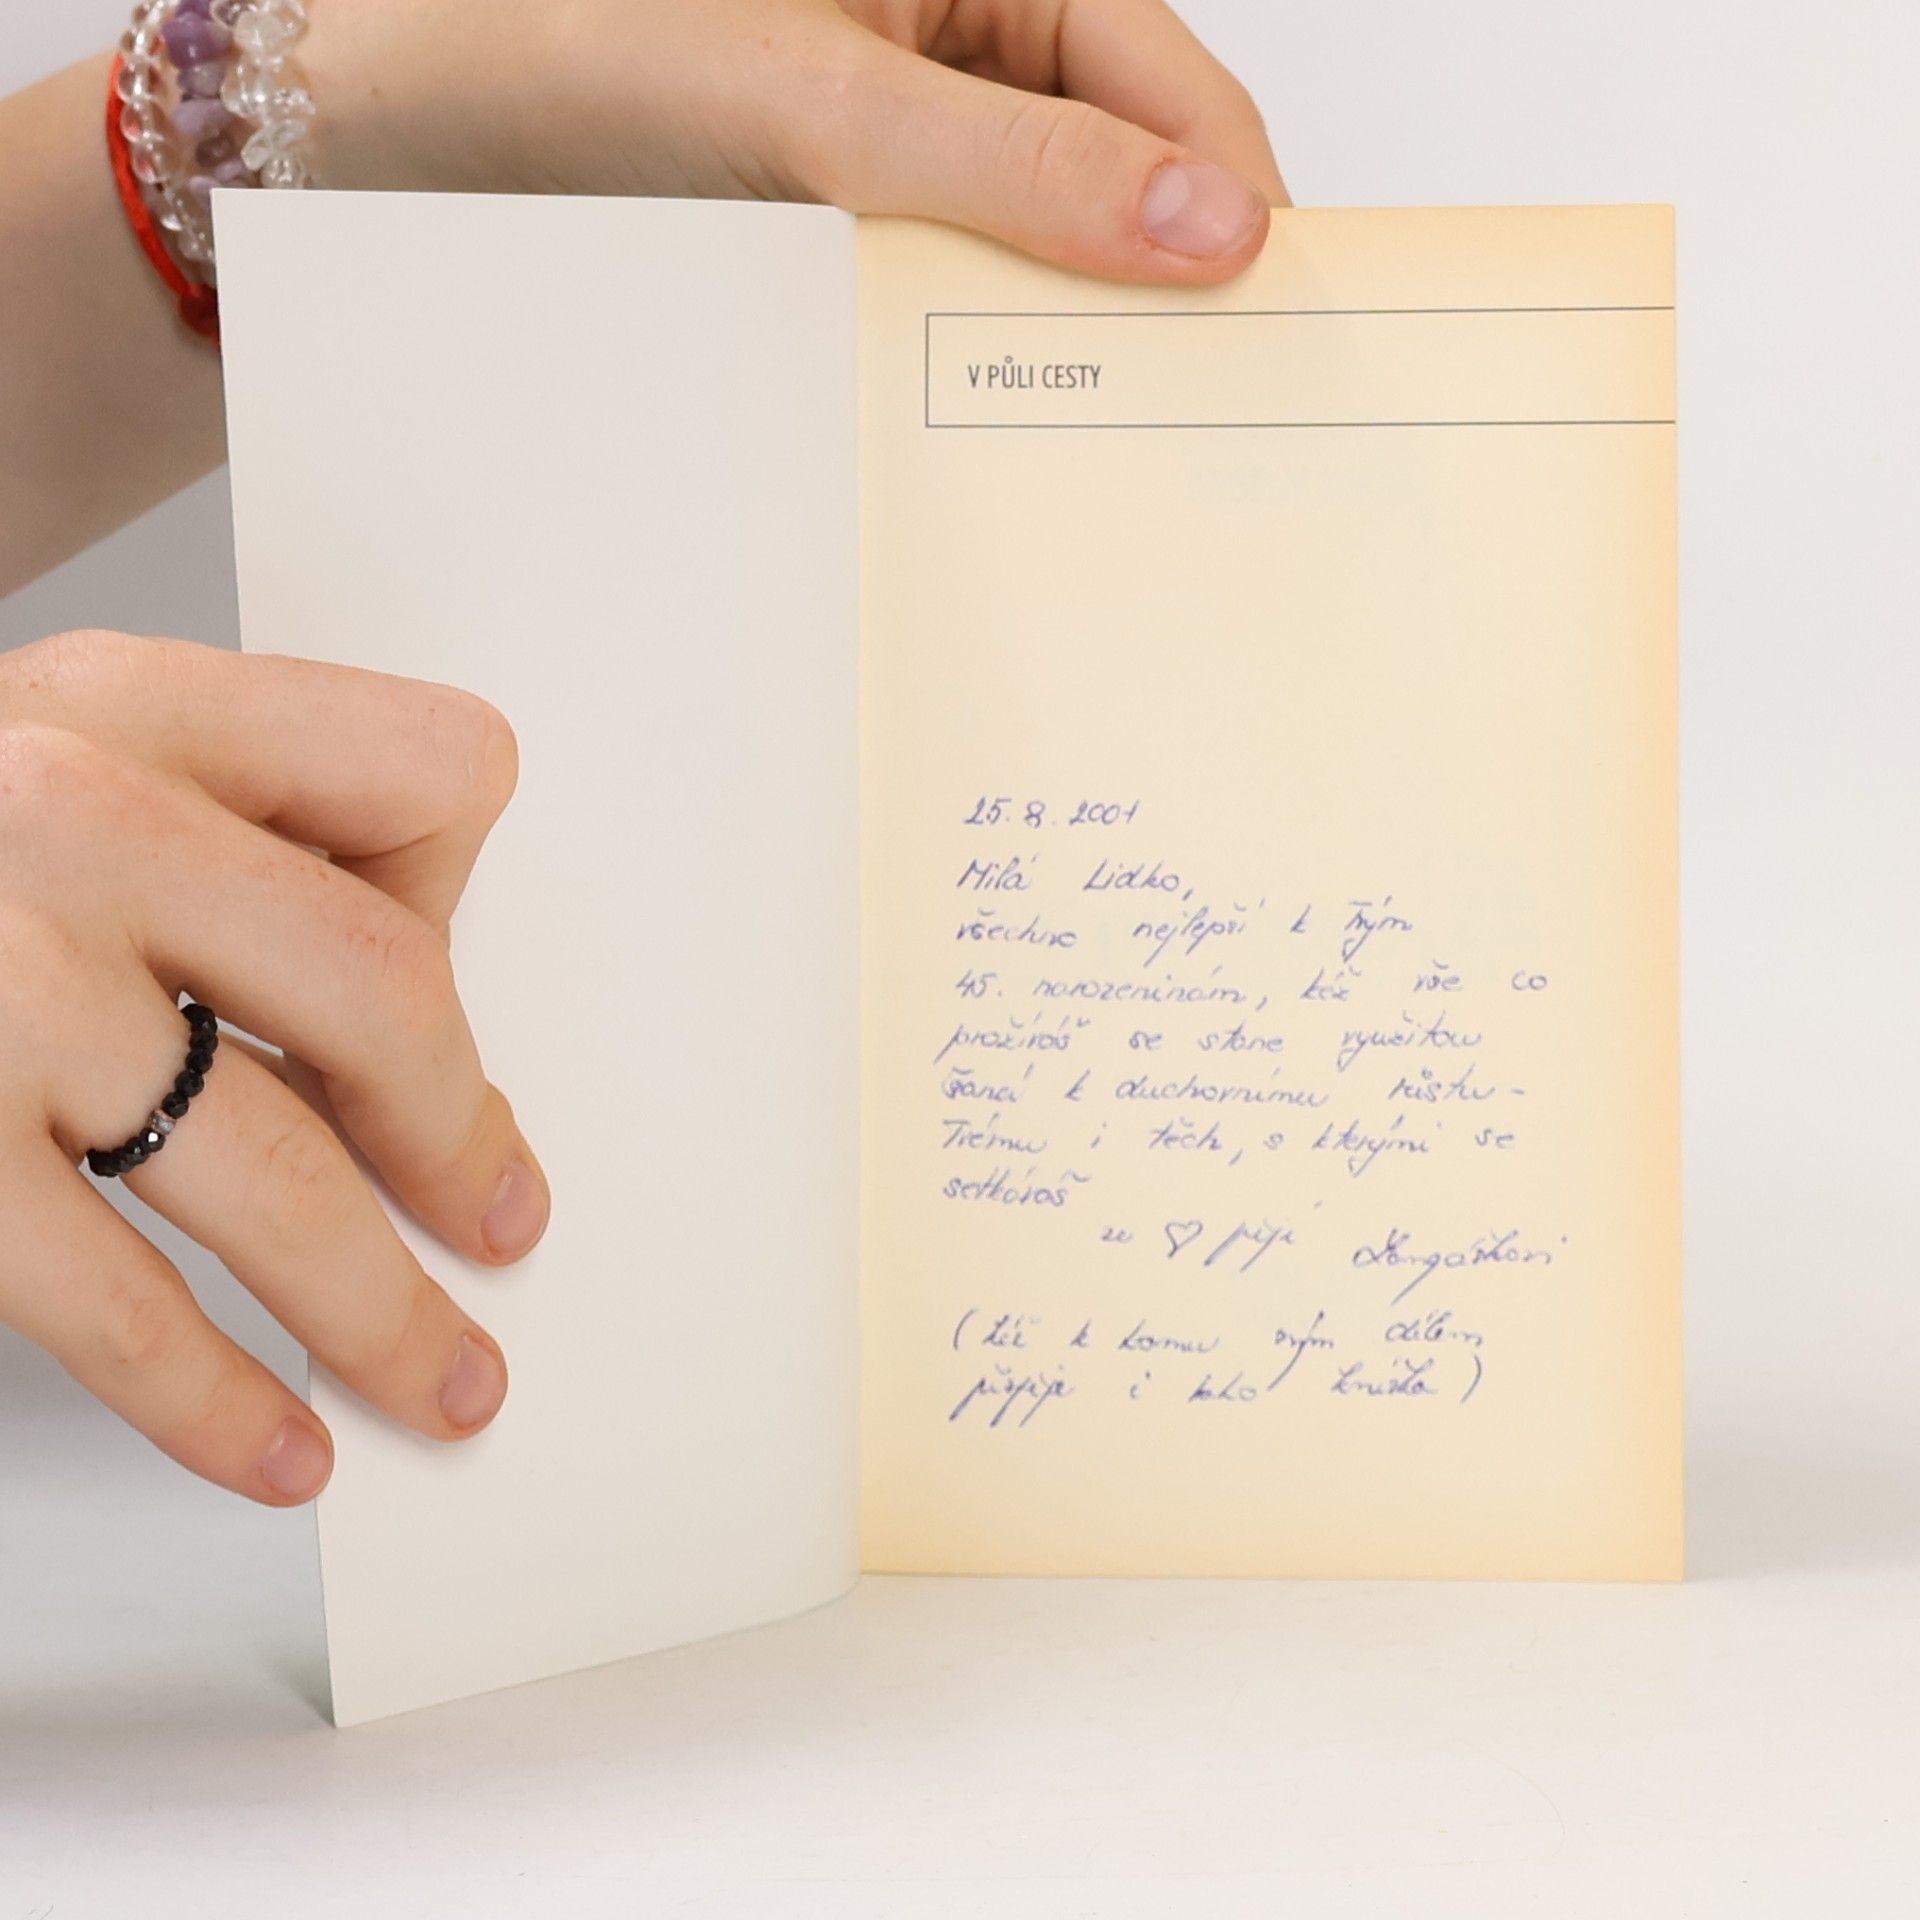 V PŮLI CESTY
25. 8. 2001
Milá Lidko,
všechno nejlepší k Tvým
45. narozeninám, kéž vše co
prožíváš se stane využitou
šancí k duchovnímu růstu -
Tvému i těch, s kterými se
setkáváš
ze ♡ přejí
(kéž k tomu svým dílem
přispěje i tato knížka)